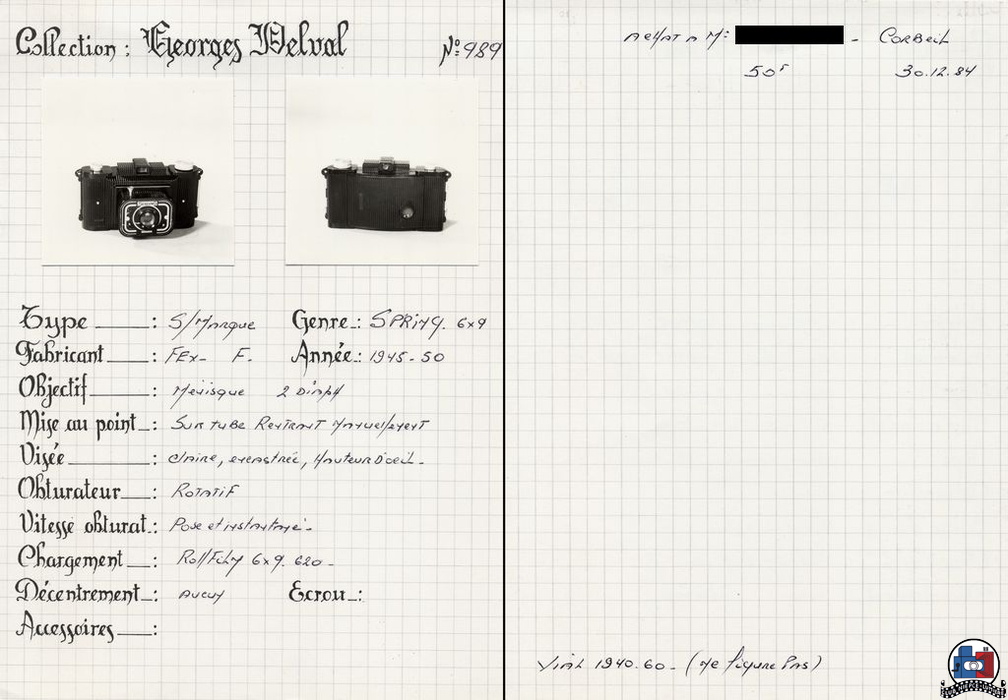 Collection : Georges Delval N° 989
Type : S/Marque Genre : SPRING. 6x9
Fabricant : FEX- F. Année : 1945-50
Objectif : Ménisque 2 Diaph
Mise au point : Sur tube Rentrant Manuellement
Visée : Claire, encastrée, Hauteur D'oeil.
Obturateur : Rotatif
Vitesse obturat. : Pose et instantané.
Chargement : Rollfilm 6x9. 620.
Décentrement : Aucun Ecrou :
Accessoires :
Achat à Mr - Corbeil
50F 30.12.84
Vial 1940.60. (ne figure Pas)